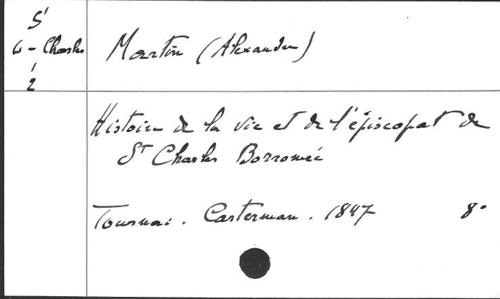 S'
G - Charles
1
2
Martin (Alexandre)
Histoire de la vie et de l'épiscopat de
St Charles Borromée
Tournai. Casterman. 1847 8°